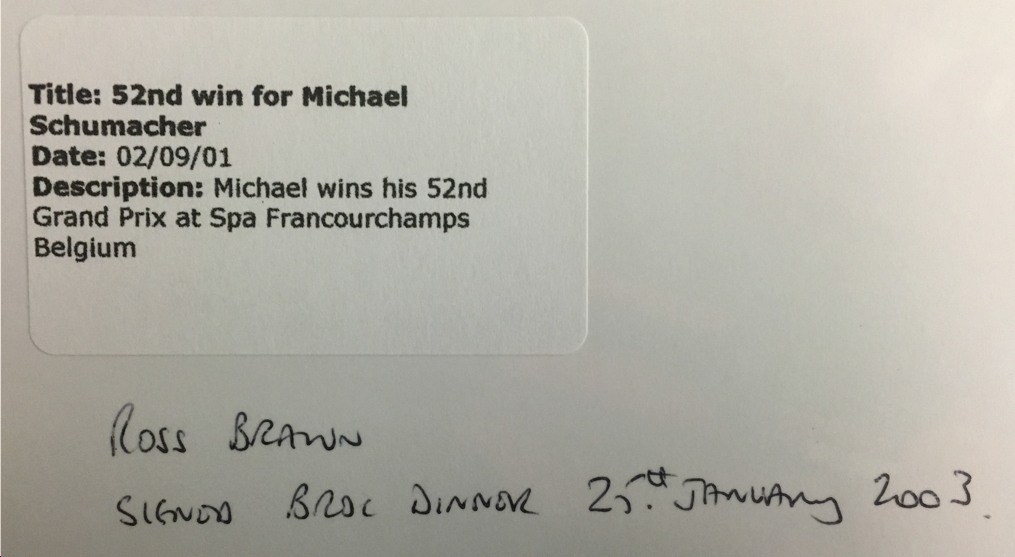 Title: 52nd win for Michael
Schumacher
Date: 02/09/01
Description: Michael wins his 52nd
Grand Prix at Spa Francourchamps
Belgium
ROSS BRAWN
SIGNED BRDC DINNER 25th JANUARY 2003.